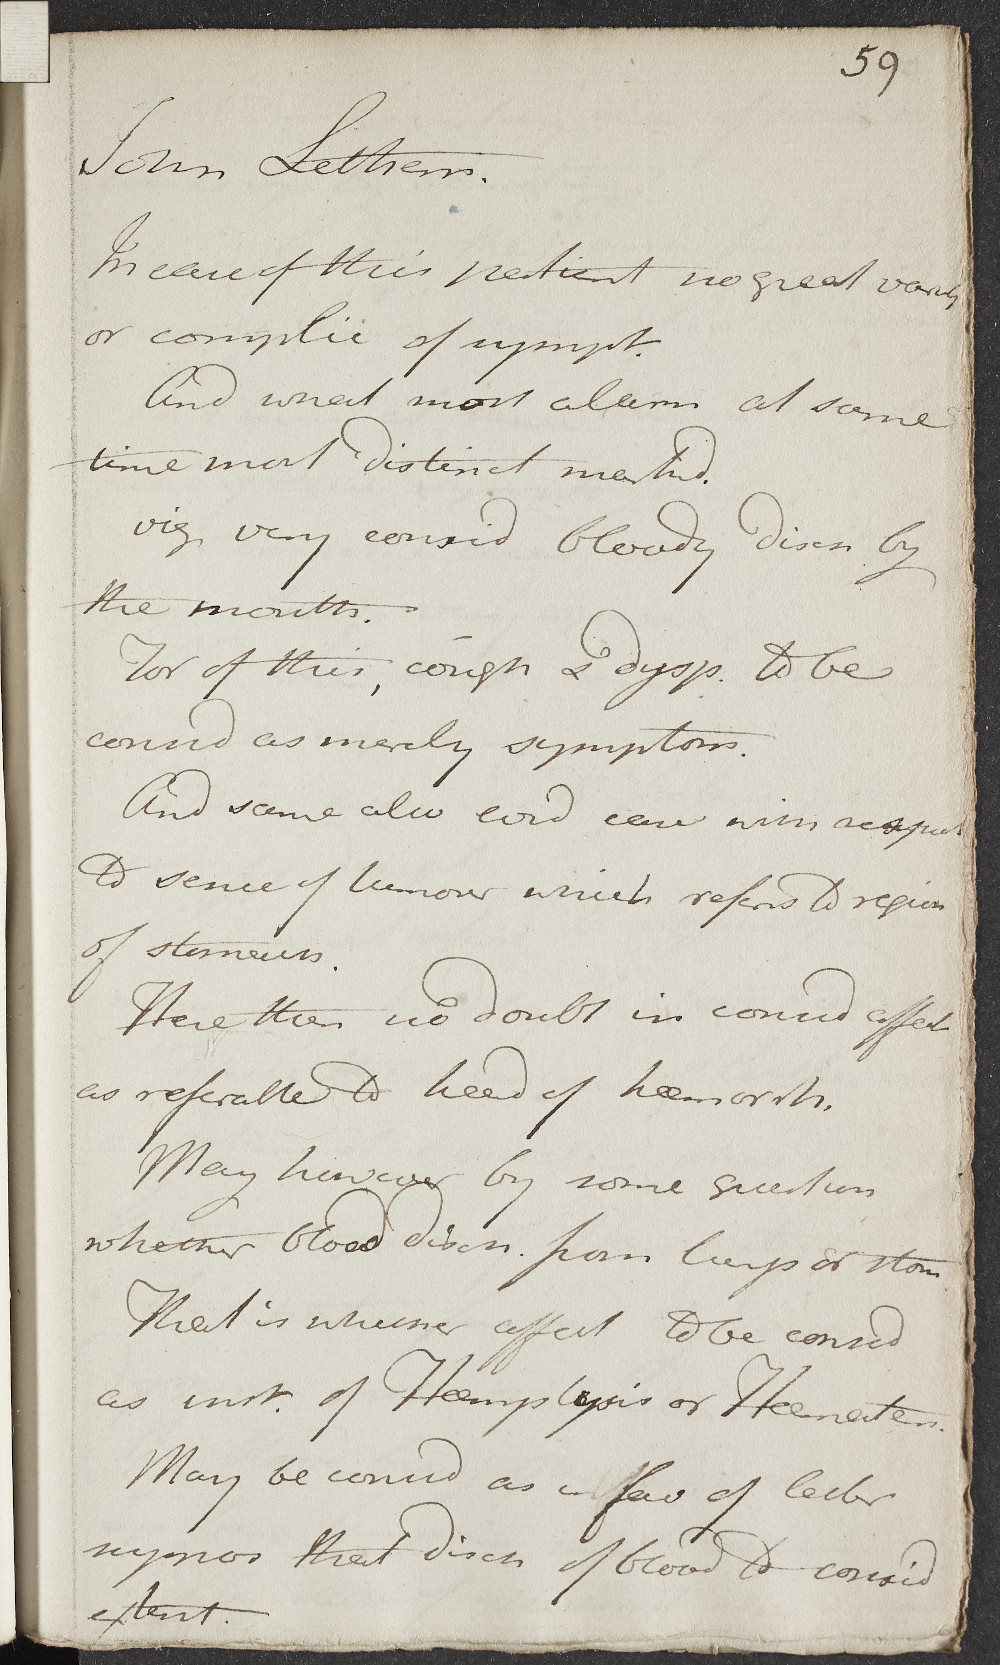 59
John Lethem.
In case of this patient no great variety
or complic of sympt.
And what most alarm at same
time most distinct marked.
viz very consid bloody disch by
the mouth.
For of this, cough & dysp. to be
consid as merely symptom.
And same also evid case with respect
to sense of tumour which refers to region
of stomach.
Here then no doubt in consid affect
as referable to head of hæmorrh.
May however by some question
whether blood disch. from lungs or stom
That is whether affect to be consid
as inst. of Hæmoptysis or Hæmatem.
May be consid as in fav of latter
suppos that disch of blood to consid
extent.